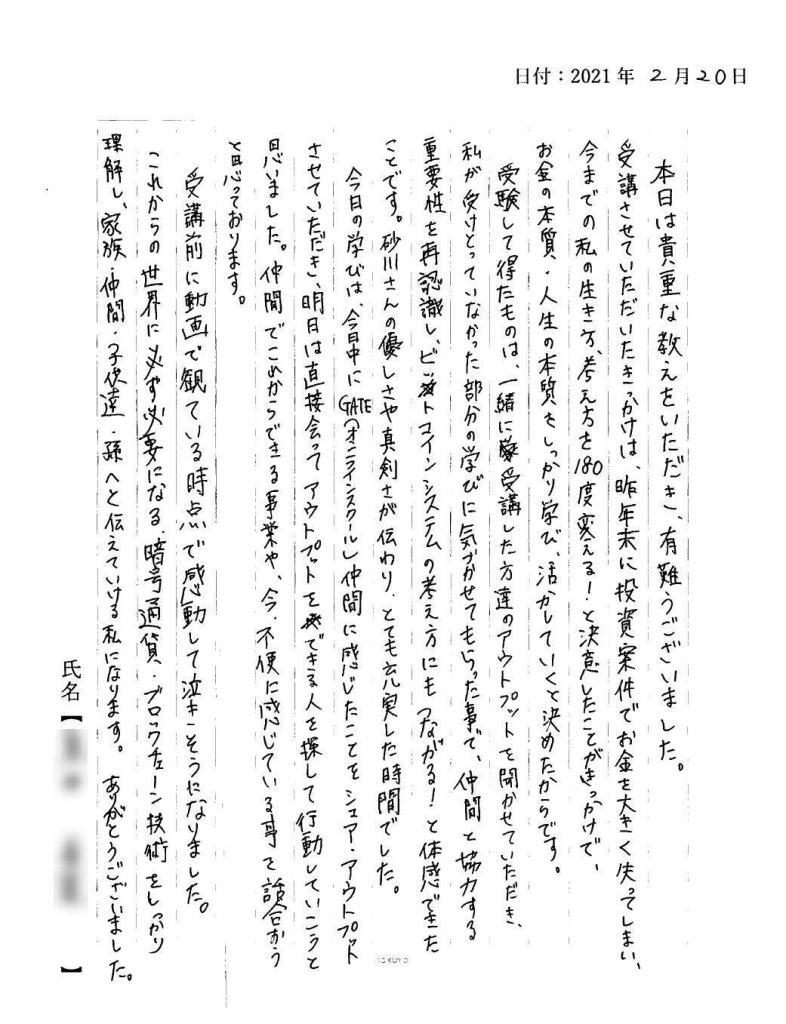 日付：2021年 2月20日
本日は貴重な教えをいただき、有難うございました。
受講させていただいたきっかけは、昨年末に投資案件でお金を大きく失ってしまい、
今までの私の生き方、考え方を180度変える！と決意したことがきっかけで、
お金の本質・人生の本質をしっかり学び、活かしていくと決めたからです。
受験して得たものは、一緒に受講した方達のアウトプットを聞かせていただき、
私が受けとっていなかった部分の学びに気づかせてもらった事で、仲間と協力する
重要性を再認識し、ビットコインシステムの考え方にもつながる！と体感できた
ことです。砂川さんの優しさや真剣さが伝わり、とても充実した時間でした。
今日の学びは、今日中にGATE(オンラインスクール)仲間に感じたことをシェア・アウトプット
させていただき、明日は直接会ってアウトプットをできる人を探して行動していこうと
思いました。仲間でこれからできる事業や、今、不便に感じている事を話合おう
と思っております。
受講前に動画で観ている時点で感動して泣きそうになりました。
これからの世界に必ず必要になる、暗号通貨・ブロックチェーン技術をしっかり
理解し、家族・仲間・子供達・孫へと伝えていける私になります。ありがとうございました。
氏名【 】
KOKUYO